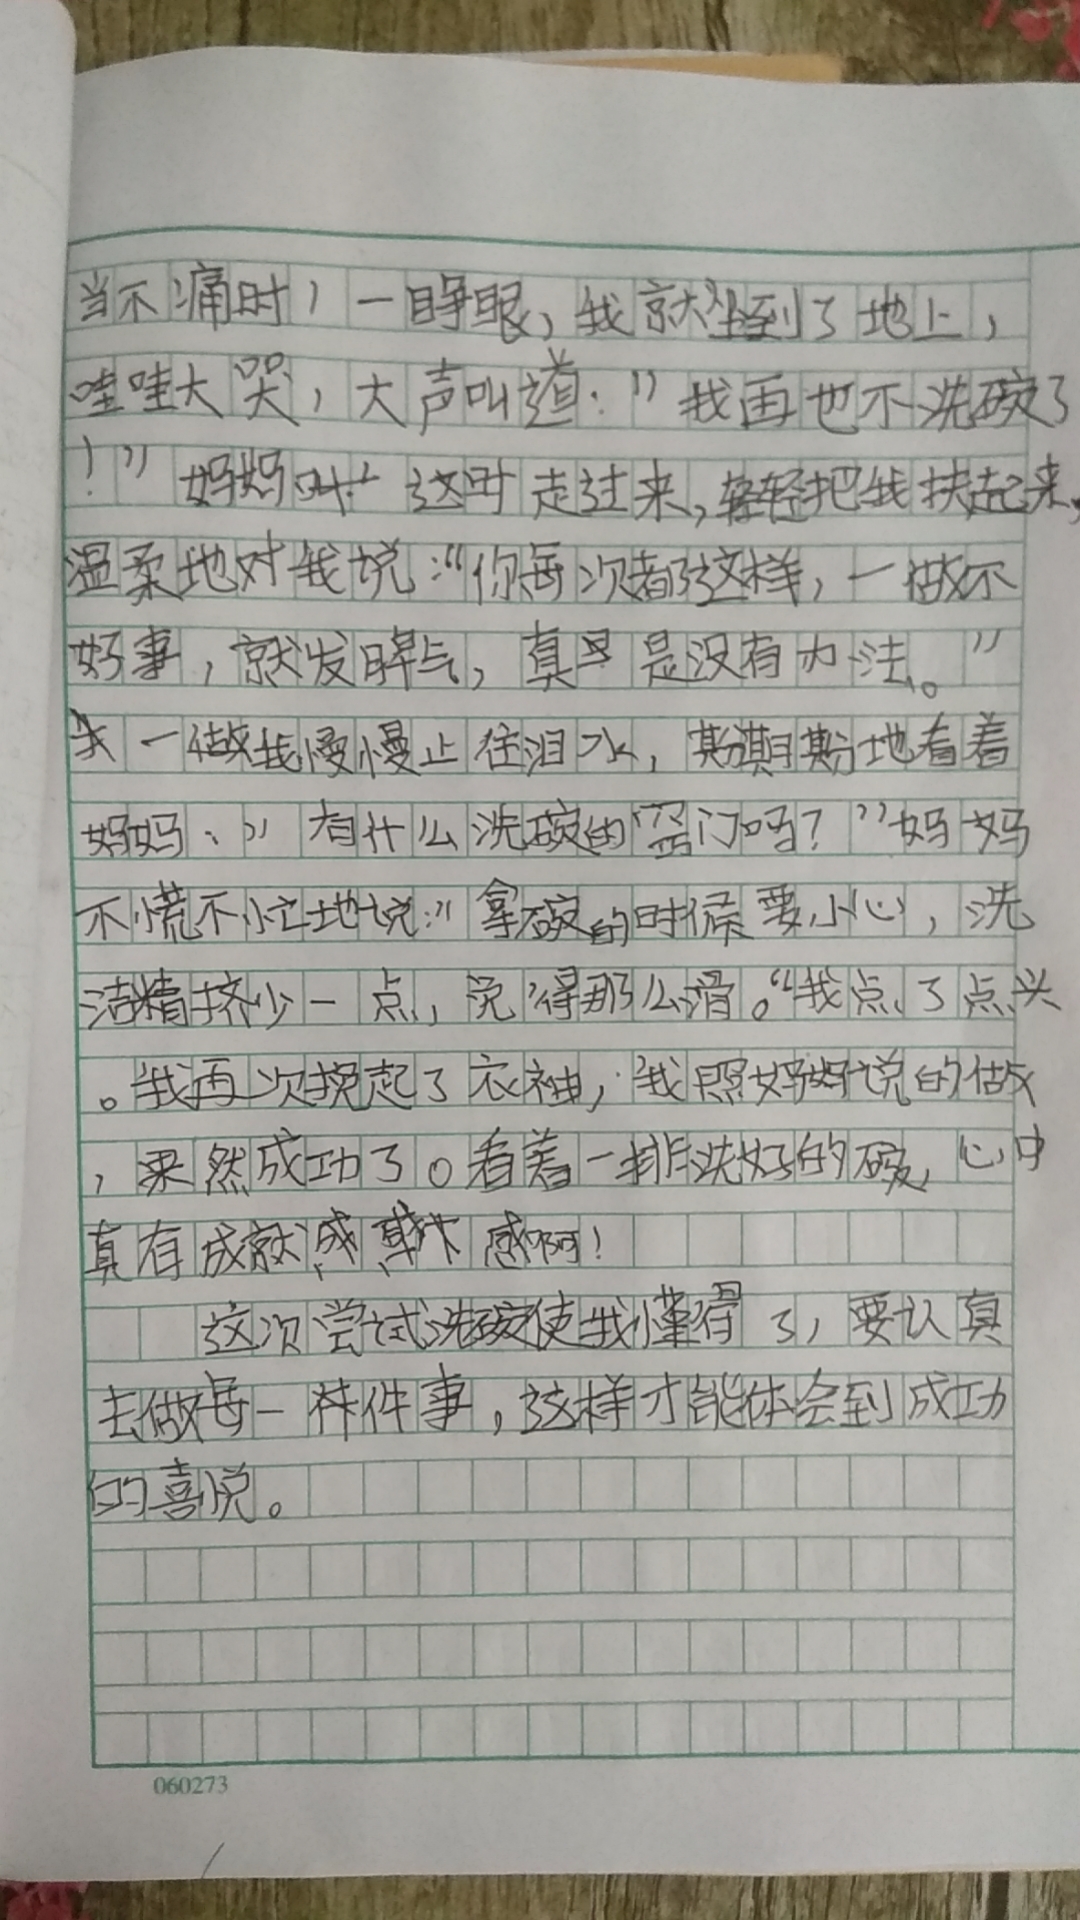 当不痛时，一睁眼，我就坐到了地上，
哇哇大哭，大声叫道：”我再也不洗碗了
！”妈妈 这时走过来，轻轻把我扶起来，
温柔地对我说：“你每次都这样，一做不
好事，就发脾气，真 是没有办法。”
我一做我慢慢止住泪水， 地看着
妈妈、”有什么洗碗的 门吗？”妈妈
不慌不忙地说：”拿碗的时候要小心，洗
洁精挤少一点， 得那么滑。“我点了点头
。我再次挽起了衣袖，我照妈妈说的做
，果然成功了。看着一排洗好的碗，心中
真有成就 感啊！
这次尝试洗碗使我懂得了，要认真
去做每一 件事，这样才能体会到成功
的喜悦。
060273